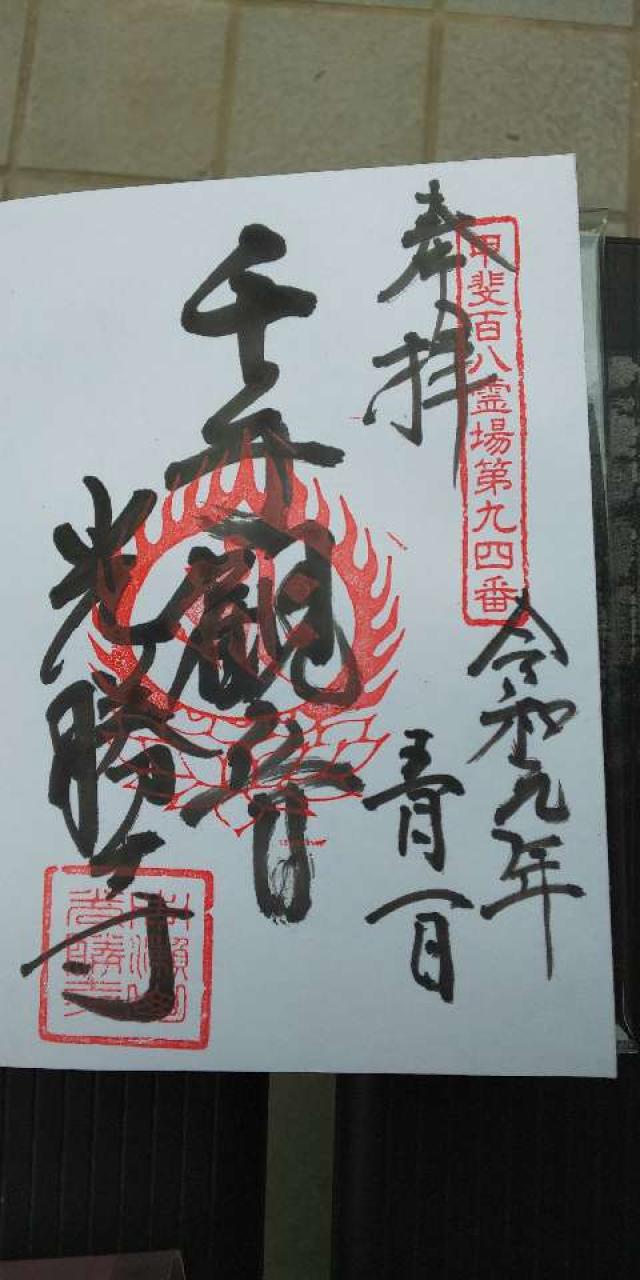 奉拝
甲斐百八霊場第九四番
令和元年
五月一日
千手觀音
光勝寺
光勝寺